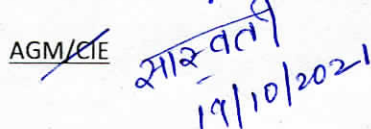 AGM/CIE
सारस्वती
19/10/2021